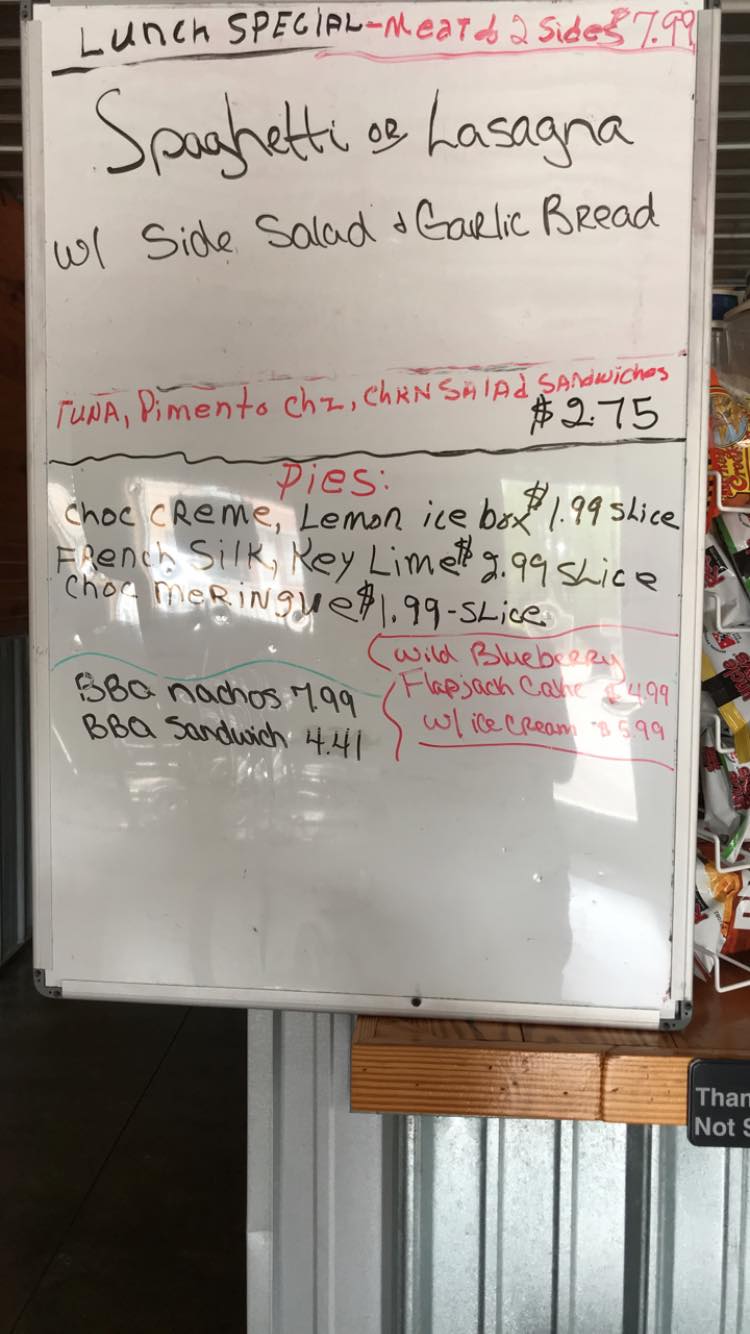 Lunch SPECIAL-Meat & 2 Sides $7.99
Spaghetti OR Lasagna
w/ Side Salad & Garlic Bread
TUNA, Pimento chz, CHKN SALAd SANdwiches
$2.75
Pies:
choc CREME, Lemon ice box $1.99 slice
FRench Silk, Key Lime $2.99 slice
choc MERiNgue $1.99-SLice
Wild Blueberry
Flapjack Cake $4.99
w/ ice cream $5.99
BBQ nachos 7.99
BBQ Sandwich 4.41
Than
Not S